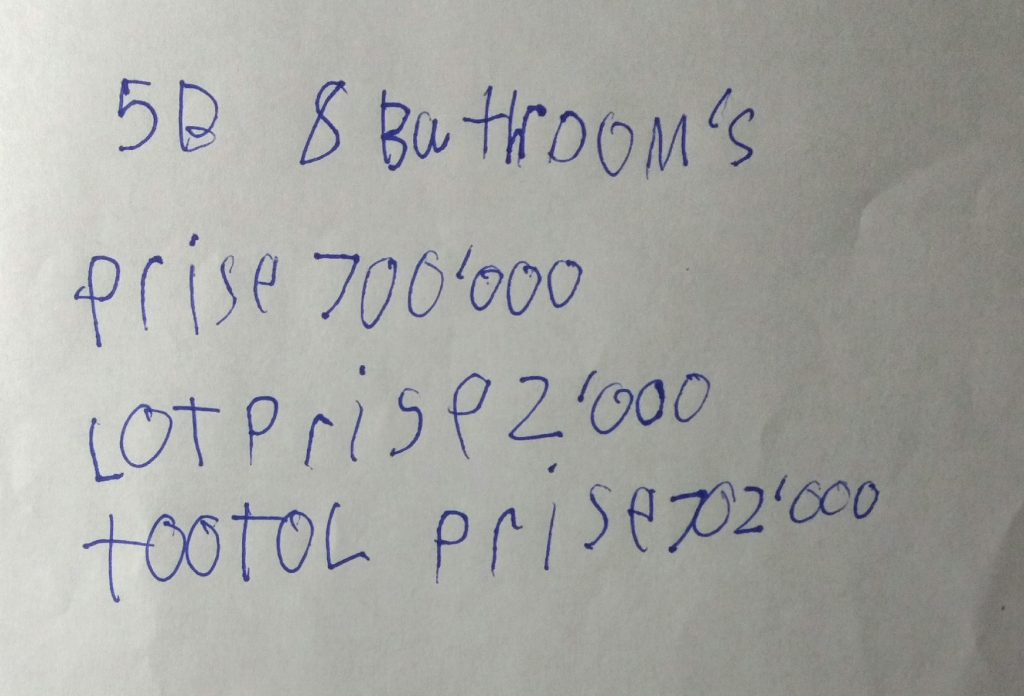 5B 8 BathrOOM's
prise 700'000
LOT prise 2'000
tootoL prise 702'000